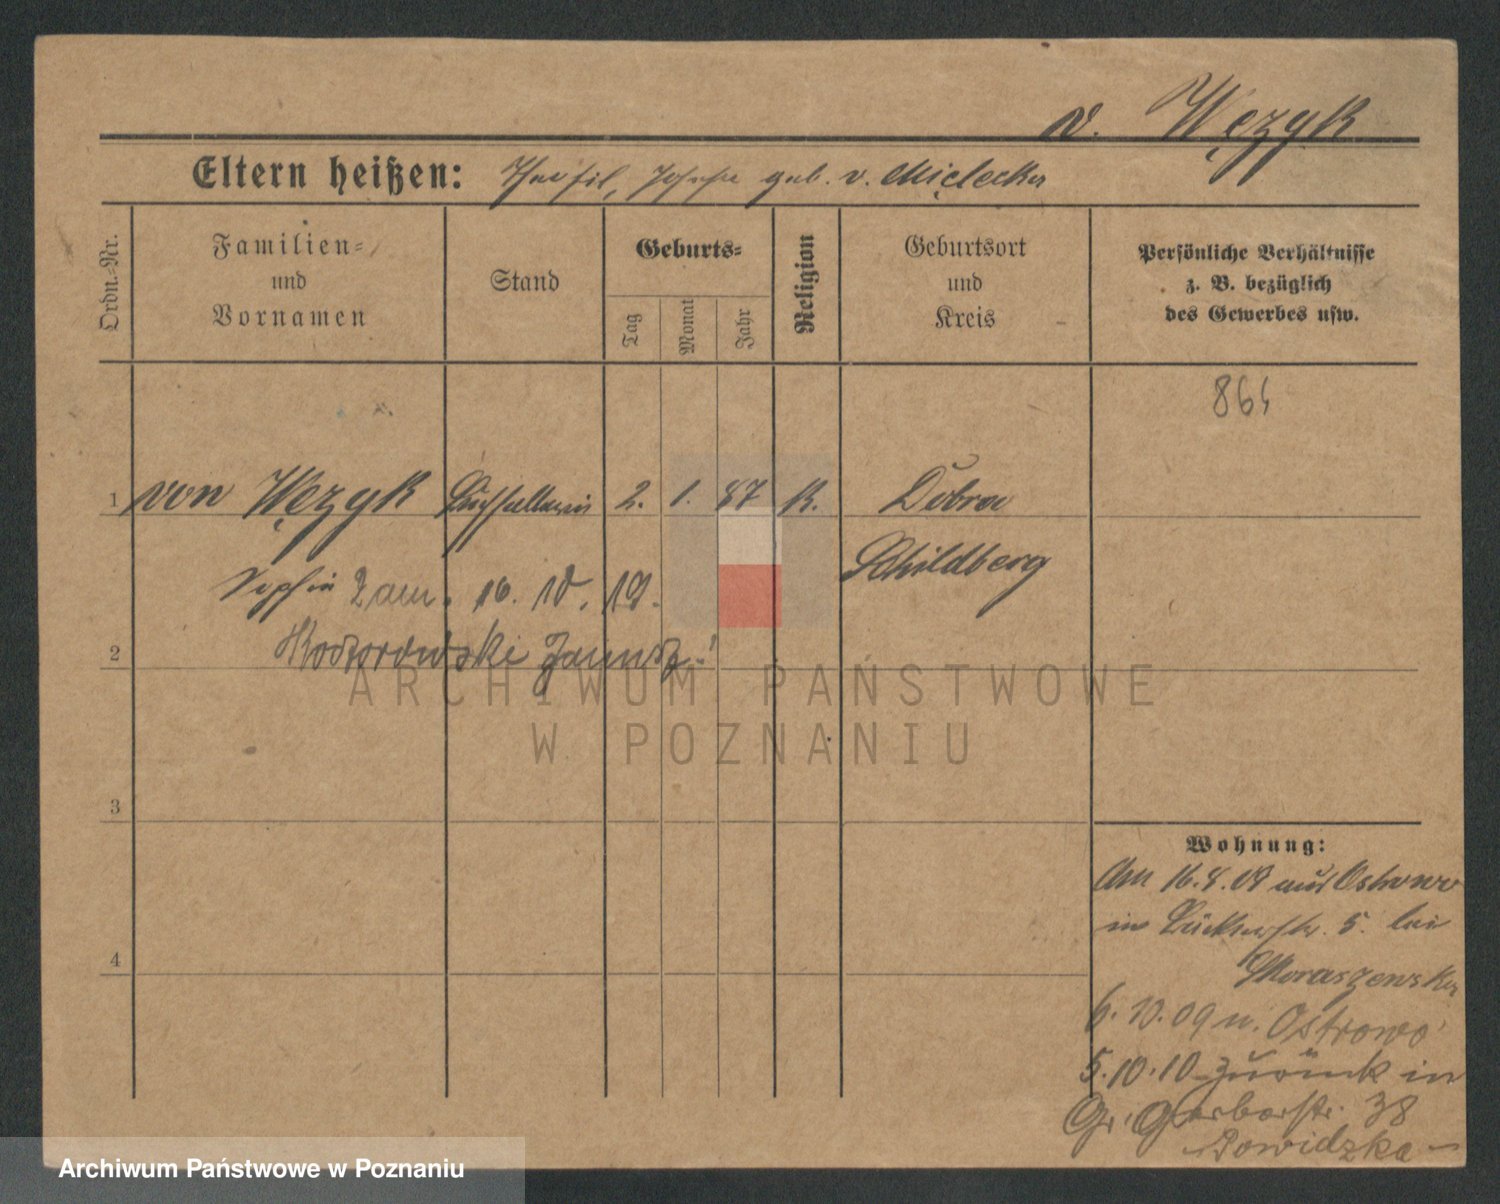 v. Węzyk
Eltern heißen: Theofil, Josefa geb. v. Mielecka
Ordn.-Nr.
Familien- und Vornamen
Stand
Geburts-
Tag
Monat
Jahr
Religion
Geburtsort und Kreis
Persönliche Verhältnisse z. B. bezüglich des Gewerbes usw.
864
1 von Węzyk 2. 1. 87 K. Dobra
Schildberg
Sophia 2 am. 16. 10. 19.
2 Janusz
3
4
Wohnung:
Am 16.8.09 aus Ostrowo
in 5. bei
Moraszewska
6.10.09 n. Ostrowo
5.10.10 zurück in
Gr. Gerberstr. 38
Dowidzka
ARCHIWUM PAŃSTWOWE
W POZNANIU
Archiwum Państwowe w Poznaniu